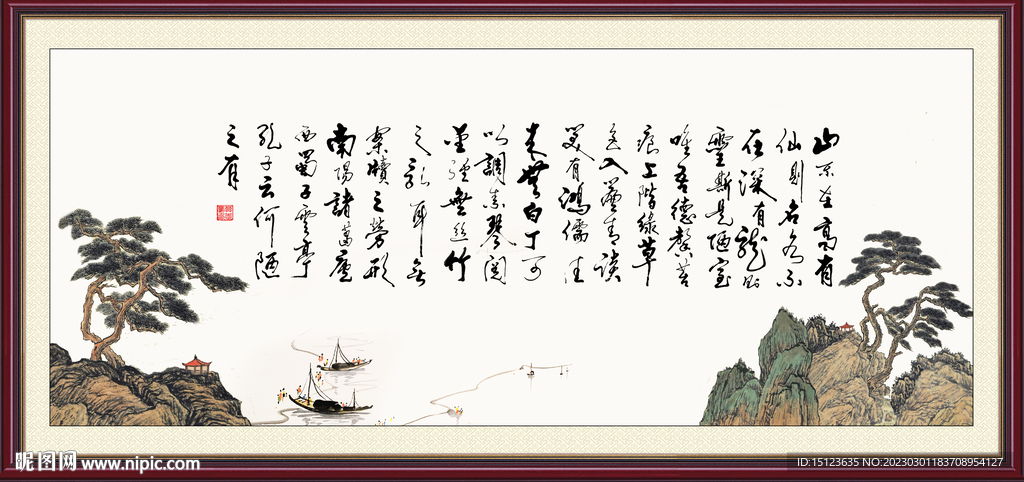 山不在高有
仙則名水不
在深有龍則
靈斯是陋室
唯吾德馨苔
痕上階綠草
色入簾青談
笑有鴻儒往
來無白丁可
以調素琴閱
金經無絲竹
之亂耳無
案牘之勞形
南陽諸葛廬
西蜀子雲亭
孔子云何陋
之有
昵图网 www.nipic.com
ID:15123635 NO:20230301183708954127